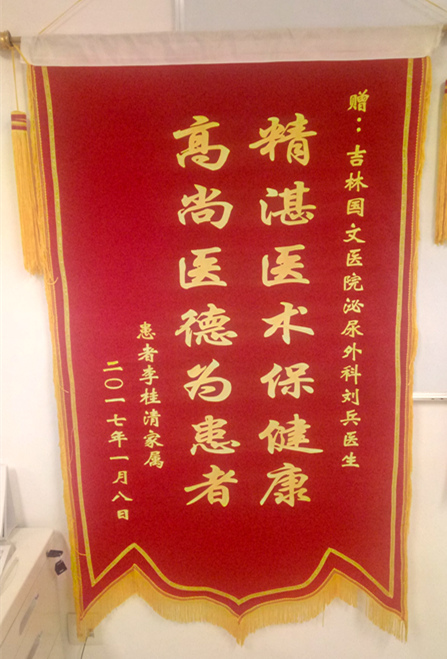 赠：吉林国文医院泌尿外科刘兵医生
精湛医术保健康
高尚医德为患者
患者李桂清家属
二〇一七年一月八日